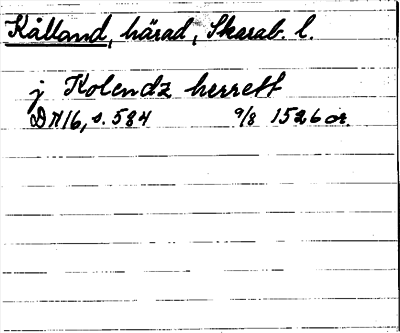 Kålland, härad, Skarab. l.
j Kolendz herrett
DN 16, s. 584 9/8 1526 or.